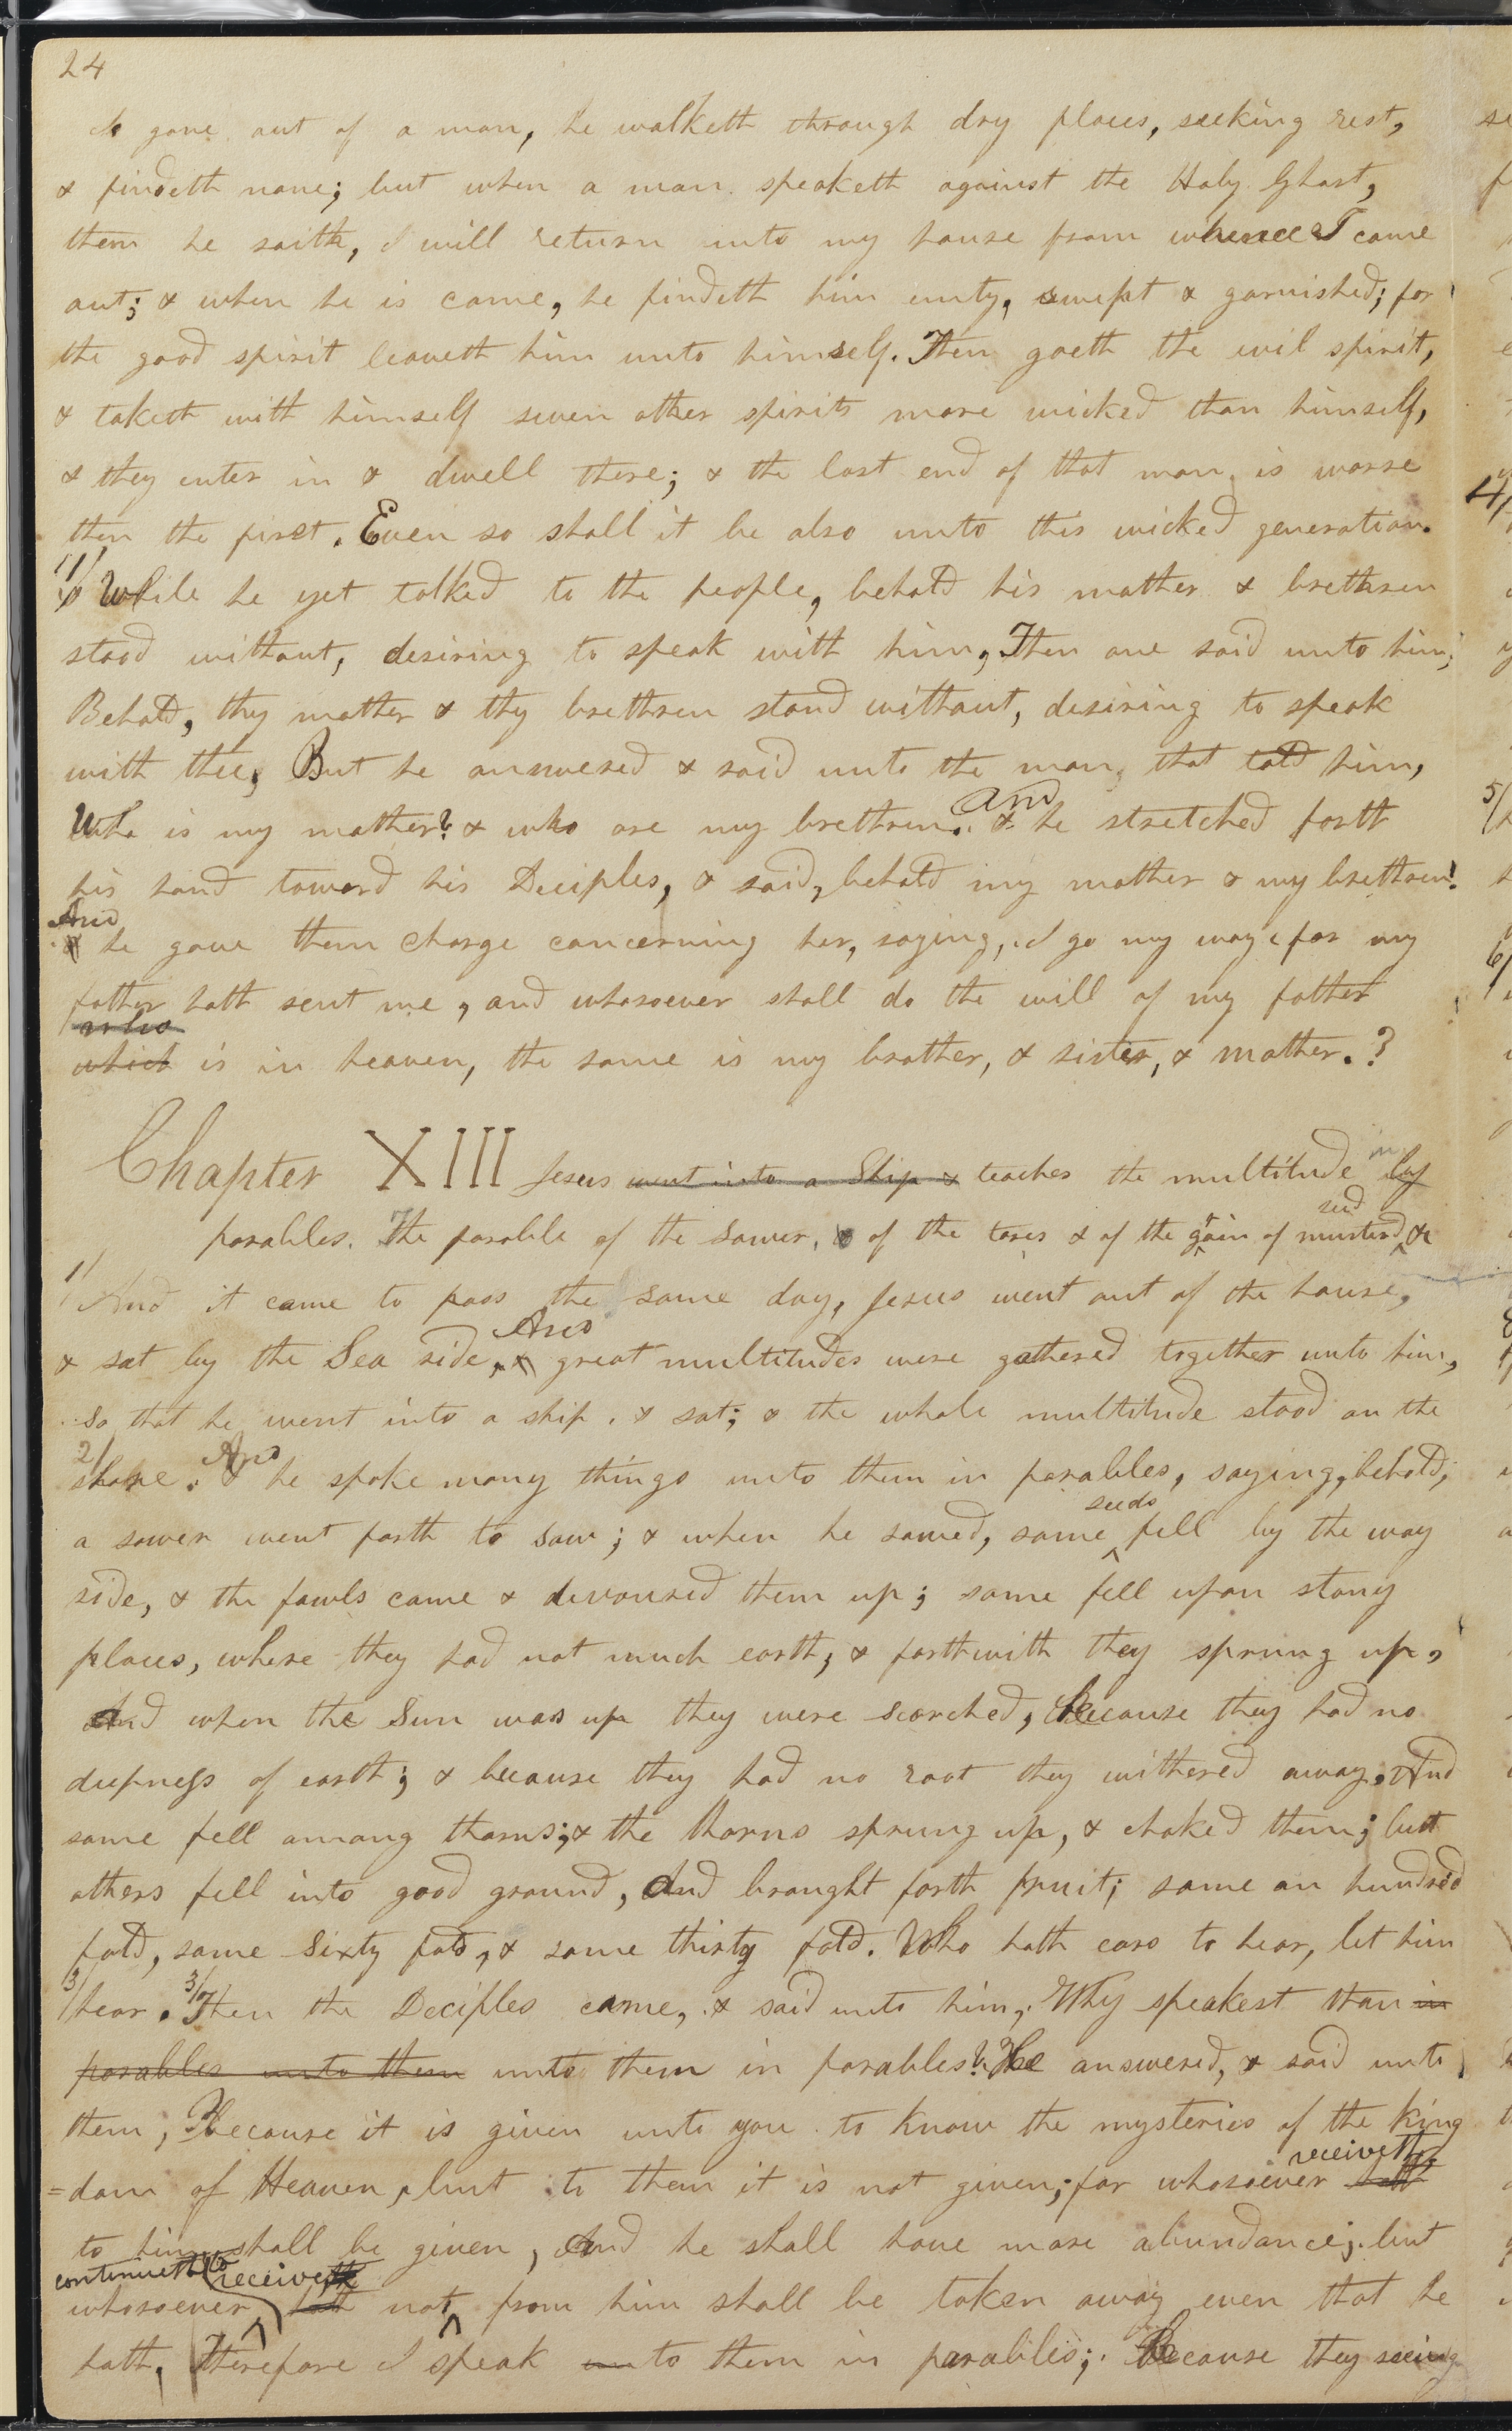 24
is gone out of a man, he walketh through dry places, seeking rest,
& findeth none; but when a man speaketh against the Holy Ghost,
then he saith, I will return unto my house from whence I came
out; & when he is come, he findeth him emty, swept & garnished; for
the good spirit leaveth him unto himself. Then goeth the evil spirit,
& taketh with himself seven other spirits more wicked than himself,
& they enter in & dwell there; & the last end of that man is worse
then the first. Even so shall it be also unto this wicked generation.
11/ While he yet talked to the people, behold his mother & brethren
stood without, desiring to speak with him, Then one said unto him;
Behold, thy mother & thy brethren stand without, desiring to speak
with thee, But he answered & said unto the man, that told him,
Who is my mother? & who are my brethren. And he stretched forth
his hand toward his Deciples, & said, behold my mother & my brethren!
And he gave them charge concerning her, saying, I go my way, for my
father hath sent me, and whosoever shall do the will of my father
who
which is in heaven, the same is my brother, & sister, & mother.
Chapter XIII Jesus went into a Ship & teaches the multitude in by
seed
parables. The parable of the Sower, & of the tares & of the grain of musterd &c
1/ And it came to pass the same day, Jesus went out of the house,
And
& sat by the Sea side, & great multitudes were gathered together unto him,
so that he went into a ship. & sat; & the whole multitude stood on the
2/ And
shore. & he spoke many things unto them in parables, saying, behold,
seeds
a sower went forth to sow; & when he sowed, some fell by the way
side, & the fowls came & devoured them up; some fell upon stony
places, where they had not much earth; & forthwith they sprung up,
And when the Sun was up they were scorched, Because they had no
deepness of earth; & because they had no root they withered away. And
some fell among thorns; & the thorns sprung up, & choked them; but
others fell into good ground, And brought forth fruit; some an hundred
fold, some Sixty fold, & some thirty fold. Who hath ears to hear, let him
3/ hear. 3/ Then the Deciples came, & said unto him, Why speakest thou in
parables unto them unto them in parables? He answered, & said unto
them, Because it is given unto you to know the mysteries of the King
receiveth
=dom of Heaven, but to them it is not given; for whosoever hath
to him shall be given, And he shall have more abundance; but
continueth to receive
whosoever hath not from him shall be taken away even that he
hath, Therefore I speak unto them in parables; Because they seeing